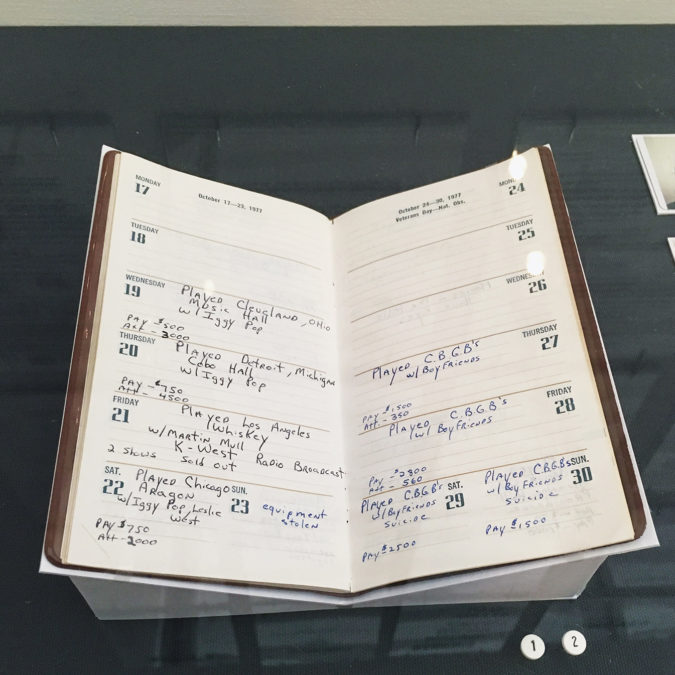 MONDAY
17
October 17—23, 1977
TUESDAY
18
WEDNESDAY
19
Played Cleveland, Ohio
Music Hall
w/ Iggy Pop
Pay $500
Att - 3000
THURSDAY
20
Played Detroit, Michigan
Cobo Hall
w/ Iggy Pop
Pay - $750
Att - 4500
FRIDAY
21
Played Los Angeles
Whiskey
w/ Martin Mull
K-West Radio Broadcast
2 shows sold out
SAT.
22
Played Chicago
Aragon
w/ Iggy Pop, Leslie
West
Pay $750
Att - 2000
SUN.
23
equipment
stolen
October 24—30, 1977
Veterans Day—Nat. Obs.
MOND
24
TUESDAY
25
WEDNESDAY
26
THURSDAY
27
Played C.B.G.B's
w/ Boyfriends
Pay $1,500
Att - 350
FRIDAY
28
Played C.B.G.B's
w/ Boyfriends
Att - 560
SAT.
29
Played C.B.G.B's
w/ Boyfriends
Suicide
Pay $2500
SUN.
30
Played C.B.G.B's
w/ Boyfriends
Suicide
Pay $1,500
1
2